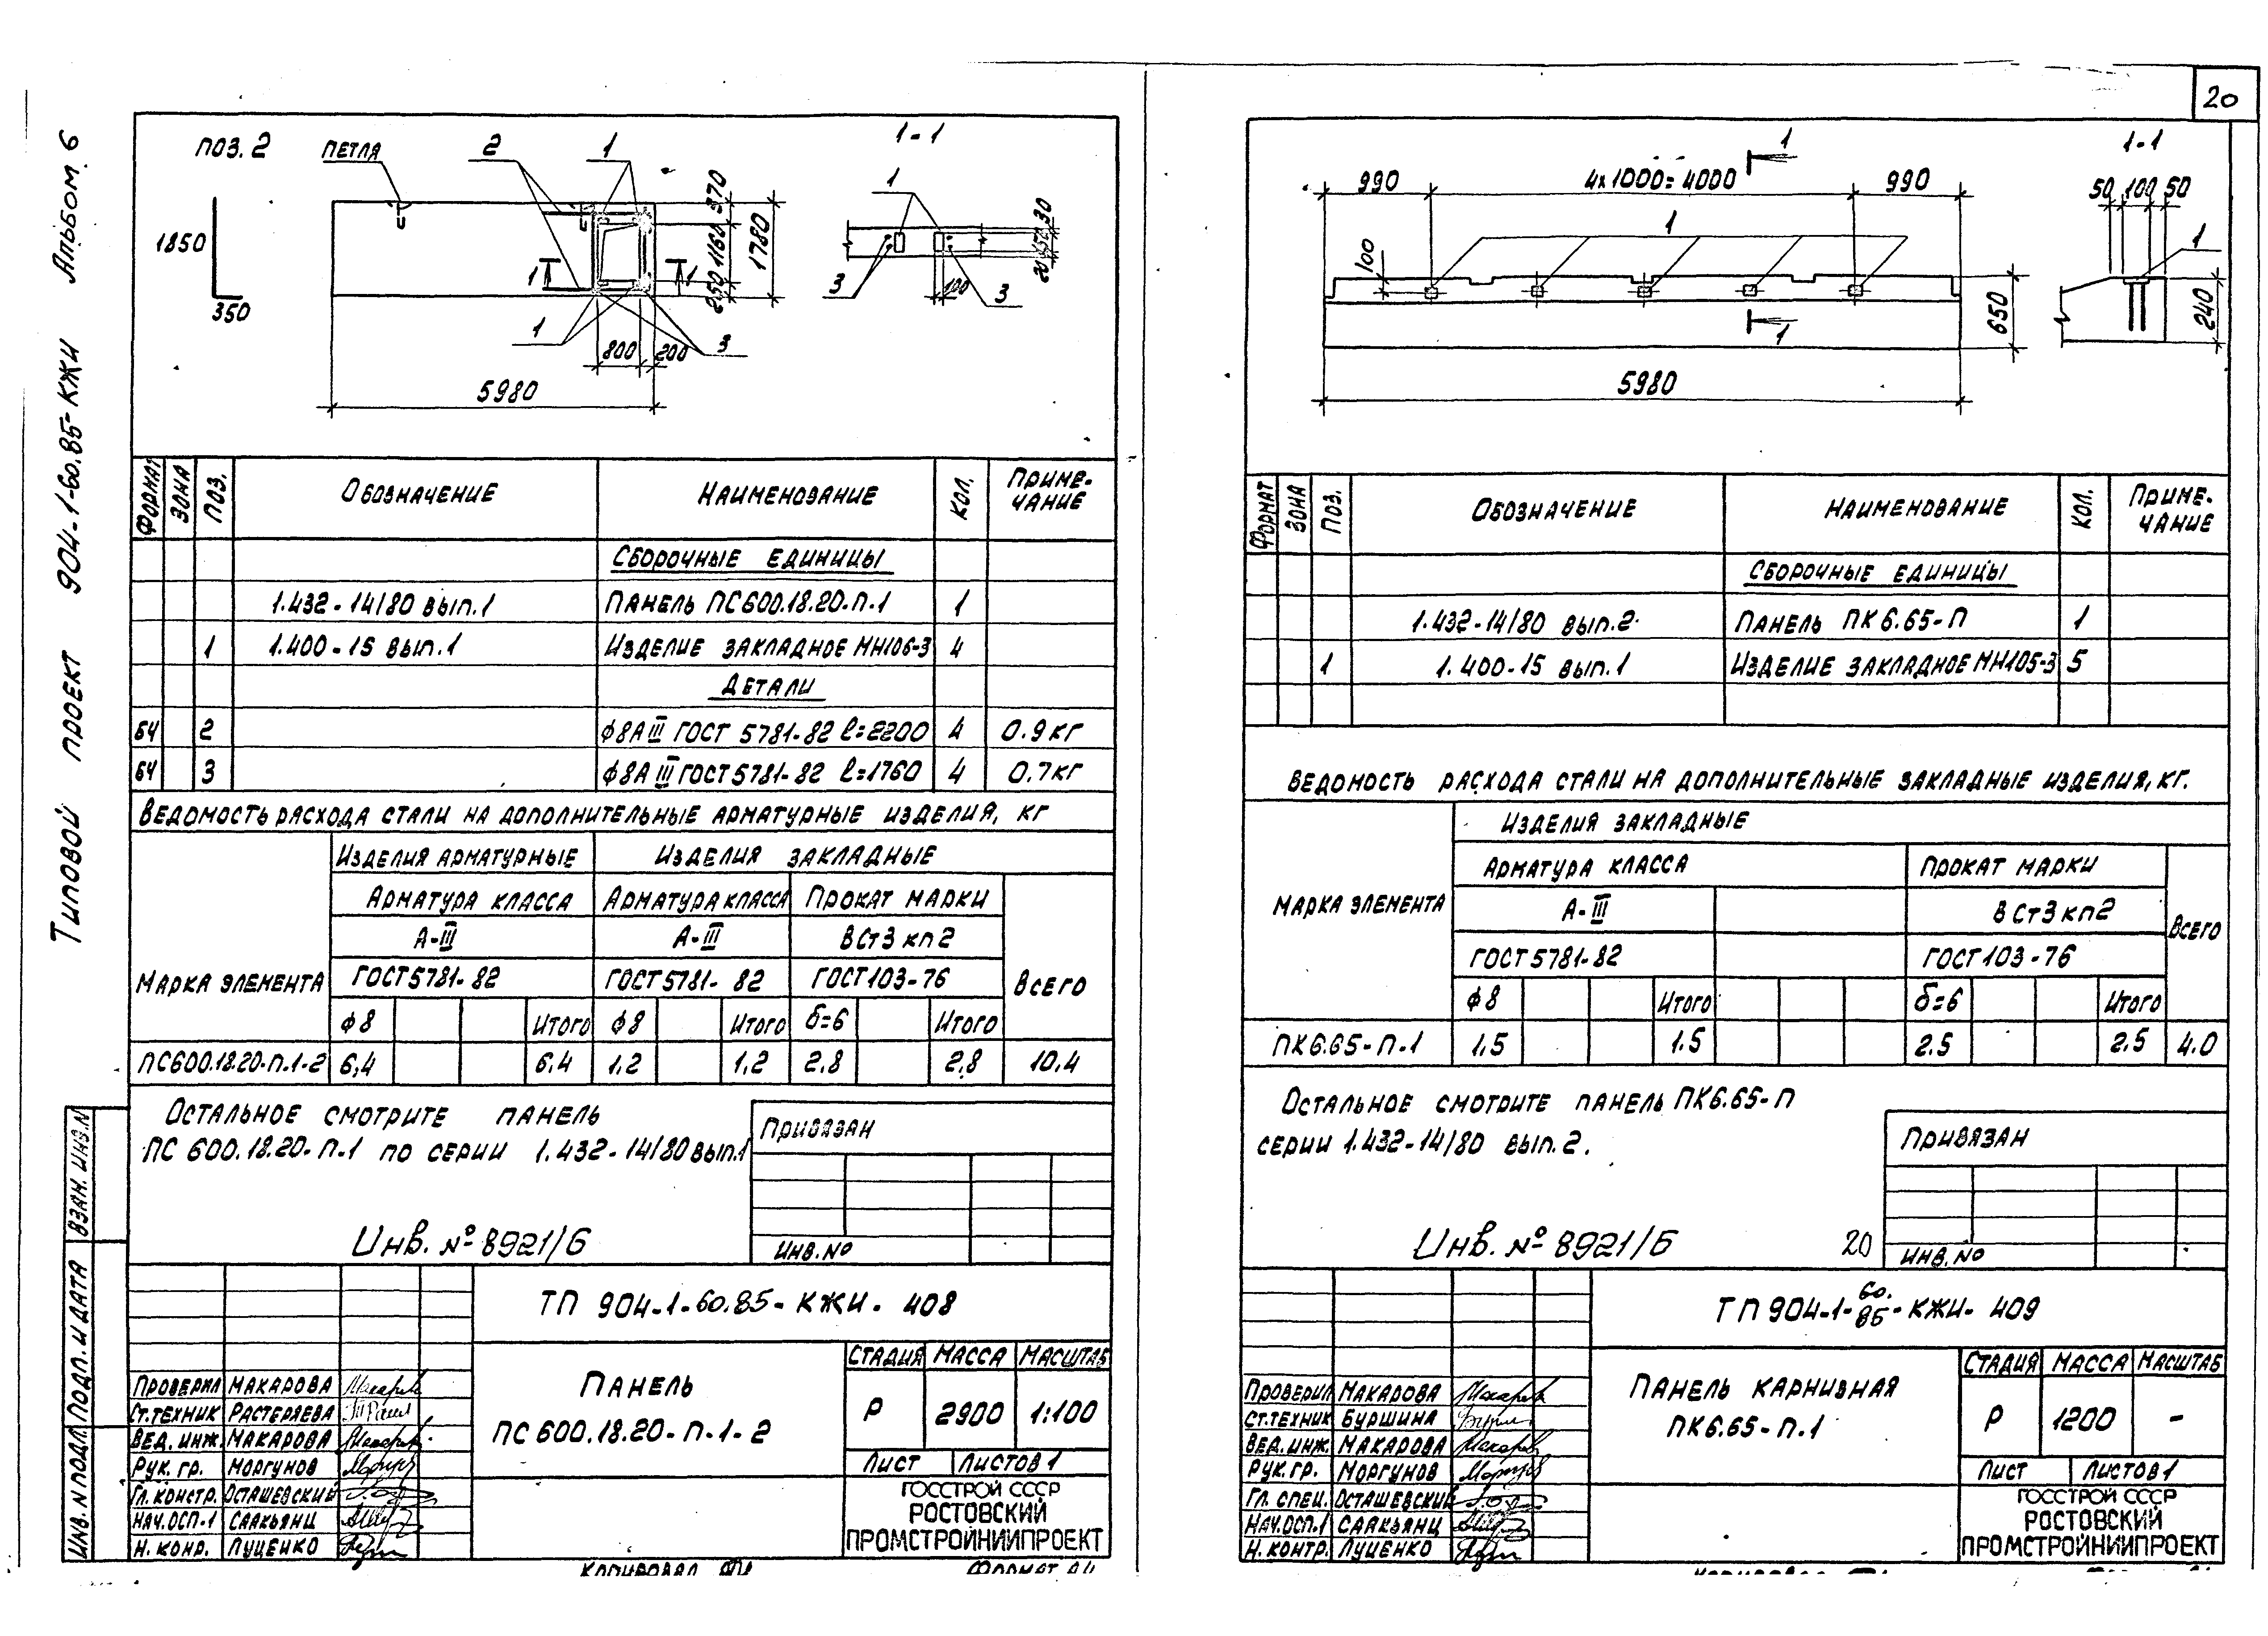 20
Типовой проект 904-1-60.85-КЖИ Альбом 6
поз. 2
петля
2
1
1-1
1850
350
370
1160
250
1780
1
1
1
3
800
200
5980
1
3
3
100
30
150
20
Формат Зона Поз. Обозначение Наименование Кол. Примечание
Сборочные единицы
1.432-14/80 вып.1 Панель ПС600.18.20-П-1 1
1 1.400-15 вып.1 Изделие закладное МН106-3 4
Детали
БЧ 2 ф8АIII ГОСТ 5781-82 ℓ=2200 4 0.9кг
БЧ 3 ф8АIII ГОСТ 5781-82 ℓ=1760 4 0.7кг
Ведомость расхода стали на дополнительные арматурные изделия, кг
Марка элемента Изделия арматурные Изделия закладные Всего
Арматура класса Арматура класса Прокат марки
А-III А-III ВСт3кп2
ГОСТ 5781-82 ГОСТ 5781-82 ГОСТ 103-76
ф8 Итого ф8 Итого δ=6 Итого
ПС600.18.20-П-1-2 6,4 6,4 1,2 1,2 2,8 2,8 10.4
Остальное смотрите панель
ПС 600.18.20-П-1 по серии 1.432-14/80 вып.1
Привязан
Инв. № 8921/6
Инв.№
Взам. инв.N
Подп. и дата
Инв. N подл.
ТП 904-1-60.85-КЖИ-408
Панель
ПС 600.18.20-П-1-2
Стадия Масса Масштаб
Р 2900 1:100
Лист Листов 1
ГОССТРОЙ СССР
РОСТОВСКИЙ
ПРОМСТРОЙНИИПРОЕКТ
Проверил Макарова
Ст.техник Растеряева
Вед. инж. Макарова
Рук. гр. Моргунов
Гл. констр. Осташевский
Нач.ОСП-1 Саакьянц
Н. конр. Луценко
Копировал
Формат А4
990
4х1000=4000
990
1
1
100
650
5980
1
1-1
50 100 50
1
240
Формат Зона Поз. Обозначение Наименование Кол. Примечание
Сборочные единицы
1.432-14/80 вып.2 Панель ПК 6.65-П 1
1 1.400-15 вып.1 Изделие закладное МН105-3 5
Ведомость расхода стали на дополнительные закладные изделия, кг.
Марка элемента Изделия закладные Всего
Арматура класса Прокат марки
А-III ВСт3кп2
ГОСТ 5781-82 ГОСТ 103-76
ф8 Итого δ=6 Итого
ПК6.65-П-1 1,5 1.5 2.5 2.5 4.0
Остальное смотрите панель ПК6.65-П
серии 1.432-14/80 вып. 2.
Привязан
Инв. № 8921/6
20
Инв.№
ТП 904-1-60.85-КЖИ-409
Панель карнизная
ПК6.65-П-1
Стадия Масса Масштаб
Р 1200 –
Лист Листов 1
ГОССТРОЙ СССР
РОСТОВСКИЙ
ПРОМСТРОЙНИИПРОЕКТ
Проверил Макарова
Ст.техник Буршина
Вед. инж. Макарова
Рук. гр. Моргунов
Гл. спец. Осташевский
Нач.ОСП-1 Саакьянц
Н. контр. Луценко